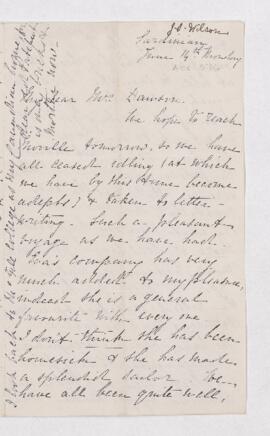 J. C. Wilson
Sardinian
June 14th Thursday
Dear Mrs Dawson.
We hope to reach
Moville tomorrow, so we have
all ceased idling (at which
we have by this time become
adepts) & taken to letter-
writing. Such a pleasant
voyage as we have had.
Eva's company has very
much added to my pleasure,
indeed she is a general
favourite with every one
I don't think she has been
homesick & she has made
a splendid sailor. We
have all been quite well,
I look back to the as my Canadian home,